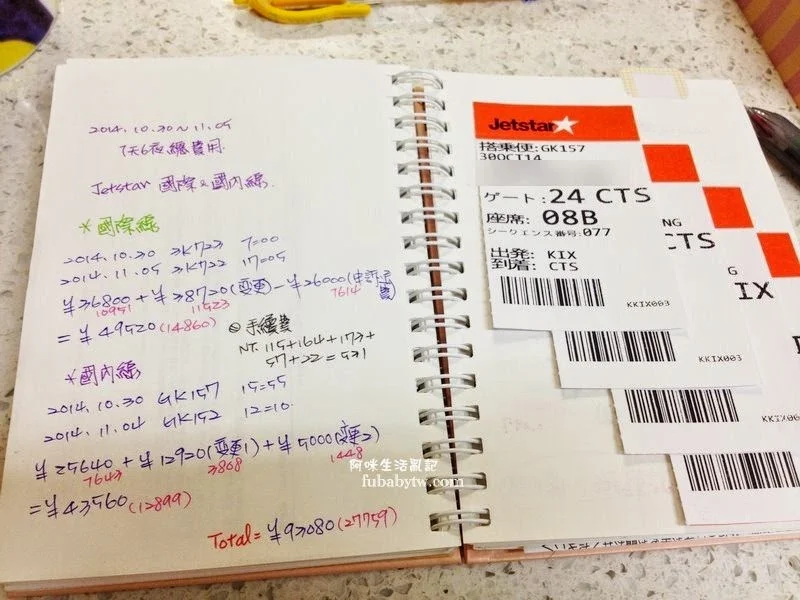 2014.10.30~11.05
7天6夜總費用
Jetstar 國際&國內線
*國際線
2014.10.30 3K723 7=00
2014.11.05 3K722 17=05
¥36800+¥38720(變更)-¥26000(申訴退費)
10951 11523 7614
=¥49520(14860)
手續費
NT.115+164+173+
57+22=531
*國內線
2014.10.30 GK157 15=55
2014.11.04 GK152 12=10
¥25640+¥12920(變更1)+¥5000(變更2)
7643 3868 1448
=¥43560(12899)
Total=¥93080(27759)
阿咪生活亂記
fubabytw.com
Jetstar
搭乗便:GK157
30OCT14
ゲート:24 CTS
座席:08B
シークエンス番号:077
出発:KIX
到着:CTS
KKIX003
NG
CTS
KKIX003
G
IX
KKIX00